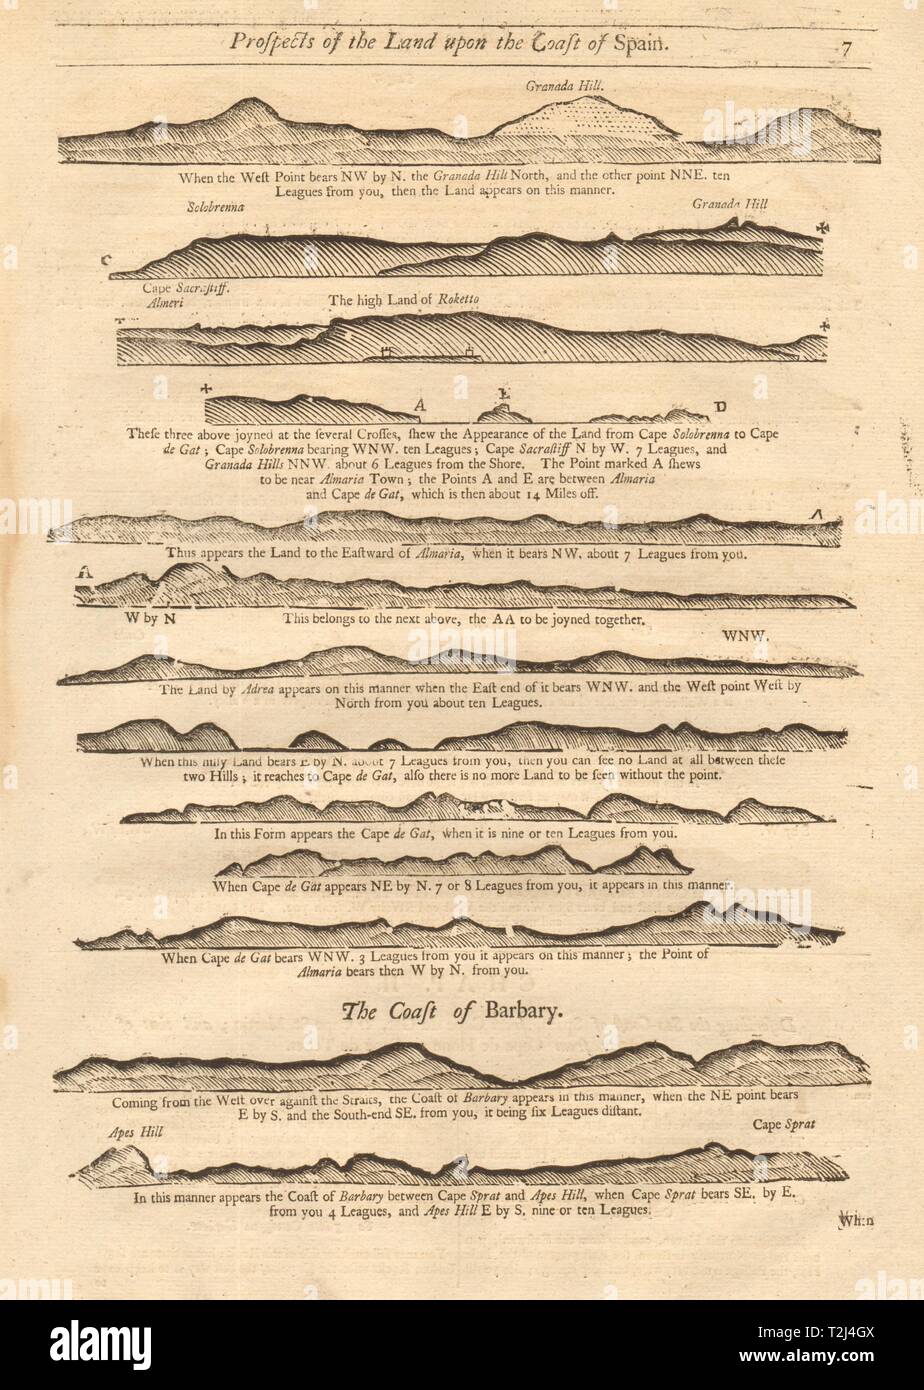 Proſpects of the Land upon the Coaſt of Spain. 7
Granada Hill.
When the Weſt Point bears NW by N. the Granada Hill North, and the other point NNE. ten
Leagues from you, then the Land appears on this manner.
Solobrenna Granada Hill
C
Cape Sacraſtiff.
Almeri The high Land of Roketto
A E D
Theſe three above joyned at the ſeveral Croſſes, ſhew the Appearance of the Land from Cape Solobrenna to Cape
de Gat; Cape Solobrenna bearing WNW. ten Leagues; Cape Sacraſtiff N by W. 7 Leagues, and
Granada Hills NNW. about 6 Leagues from the Shore. The Point marked A ſhews
to be near Almaria Town; the Points A and E are between Almaria
and Cape de Gat, which is then about 14 Miles off.
A
Thus appears the Land to the Eaſtward of Almaria, when it bears NW. about 7 Leagues from you.
A
W by N This belongs to the next above, the AA to be joyned together.
WNW.
The Land by Adrea appears on this manner when the Eaſt end of it bears WNW. and the Weſt point Weſt by
North from you about ten Leagues.
When this hilly Land bears E by N. about 7 Leagues from you, then you can ſee no Land at all between theſe
two Hills; it reaches to Cape de Gat, alſo there is no more Land to be ſeen without the point.
In this Form appears the Cape de Gat, when it is nine or ten Leagues from you.
When Cape de Gat appears NE by N. 7 or 8 Leagues from you, it appears in this manner.
When Cape de Gat bears WNW. 3 Leagues from you it appears on this manner; the Point of
Almaria bears then W by N. from you.
The Coaſt of Barbary.
Coming from the Weſt over againſt the Straits, the Coaſt of Barbary appears in this manner, when the NE point bears
E by S. and the South-end SE. from you, it being ſix Leagues diſtant.
Apes Hill Cape Sprat
In this manner appears the Coaſt of Barbary between Cape Sprat and Apes Hill, when Cape Sprat bears SE. by E.
from you 4 Leagues, and Apes Hill E by S. nine or ten Leagues.
When
alamy
Image ID: T2J4GX
www.alamy.com